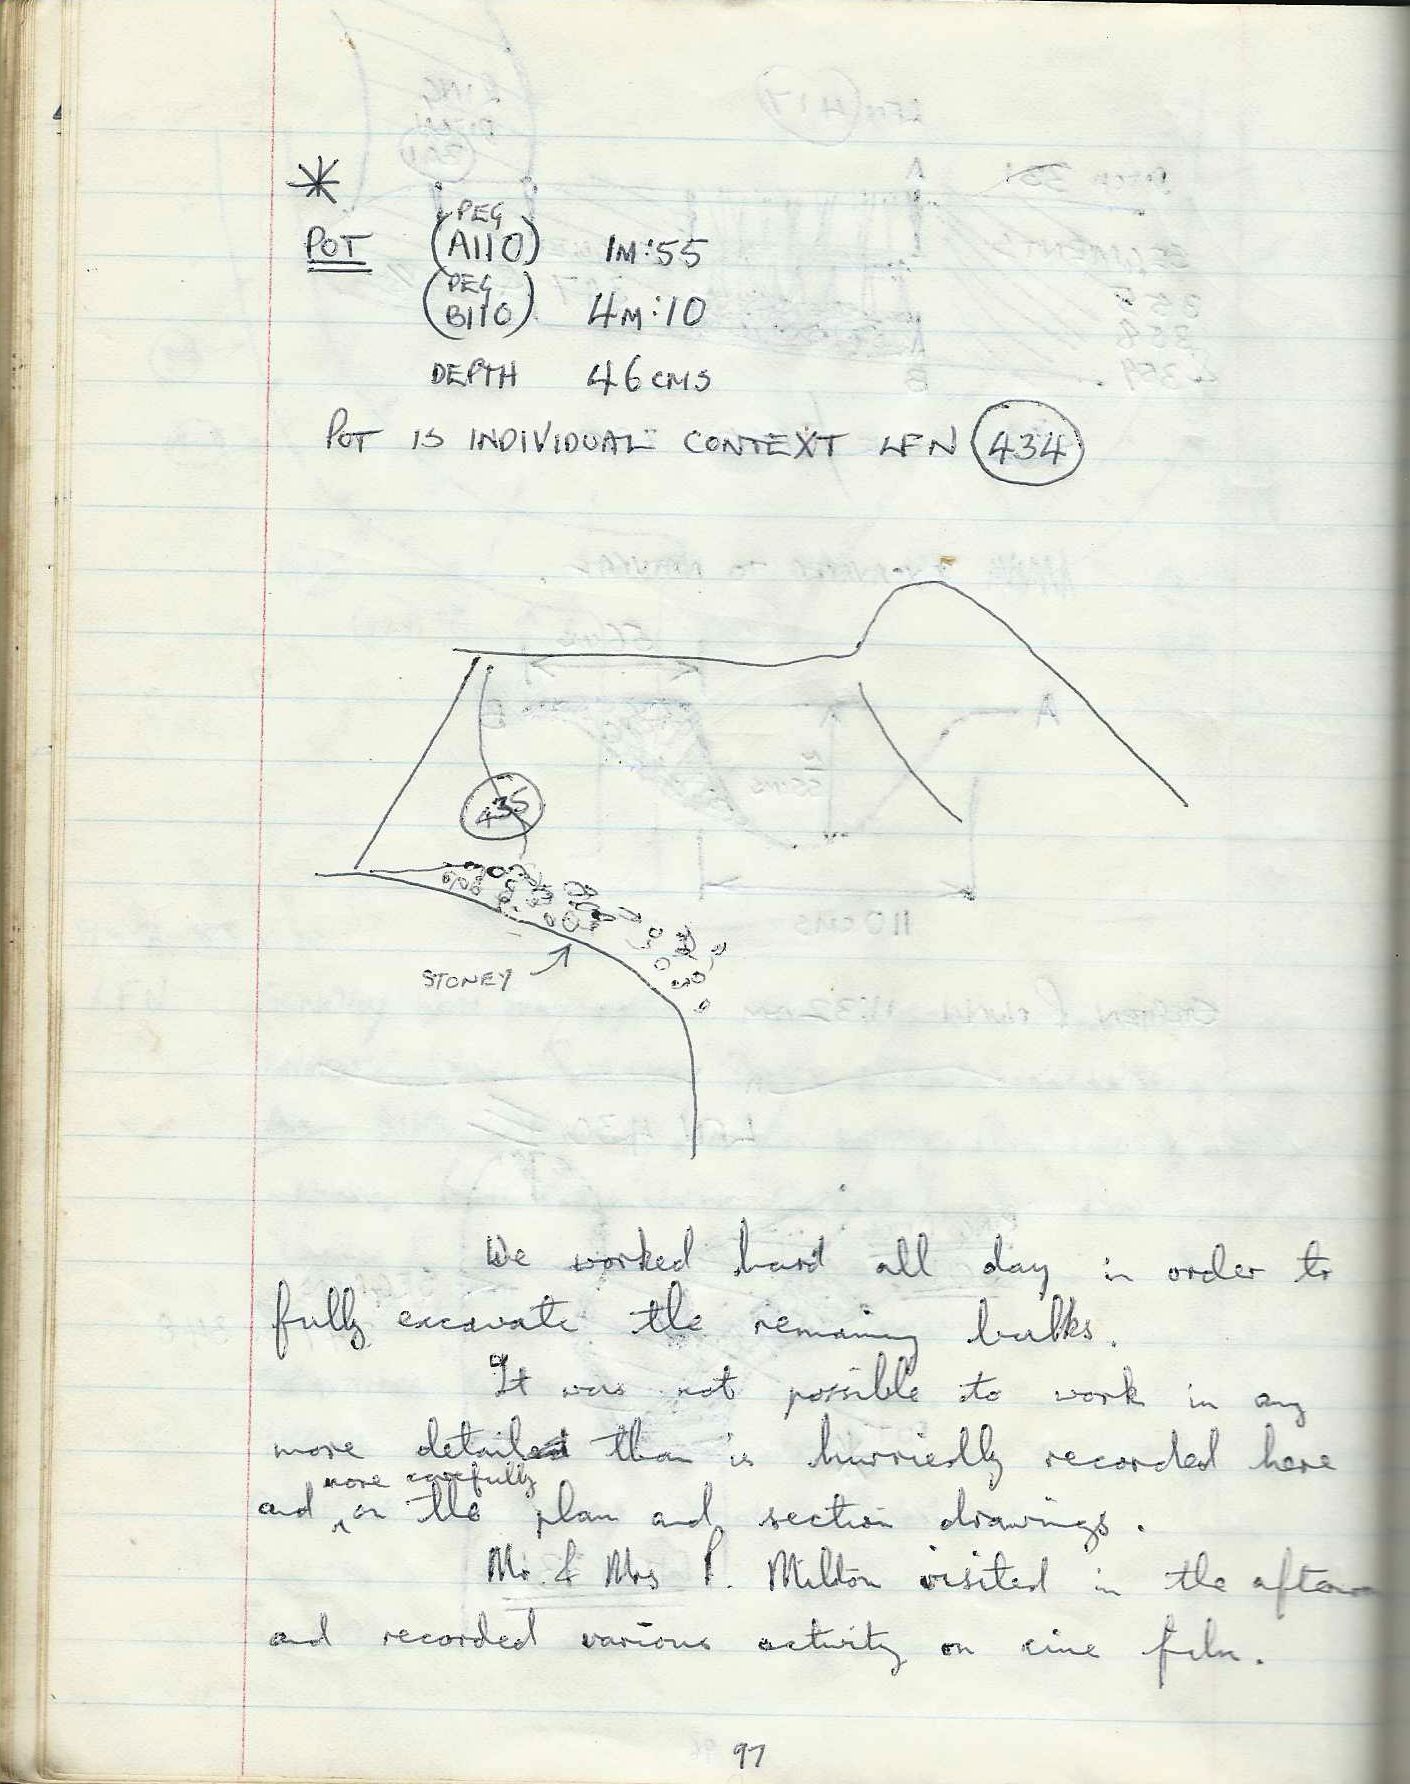 *
POT (PEG A110) 1M:55
(PEG B110) 4M:10
DEPTH 46 CMS
POT IS INDIVIDUAL CONTEXT LFN 434
435
STONEY
We worked hard all day in order to
fully excavate the remaining bulks.
It was not possible to work in any
more detail than is hurriedly recorded here
more carefully
and ^ on the plan and section drawings.
Mr. & Mrs P. Milton visited in the afternoon
and recorded various activity on cine film.
97